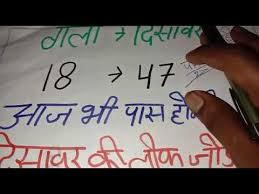 गली → दिसावर
18 → 47
आज भी पास
दिसावर की लीक जोड़